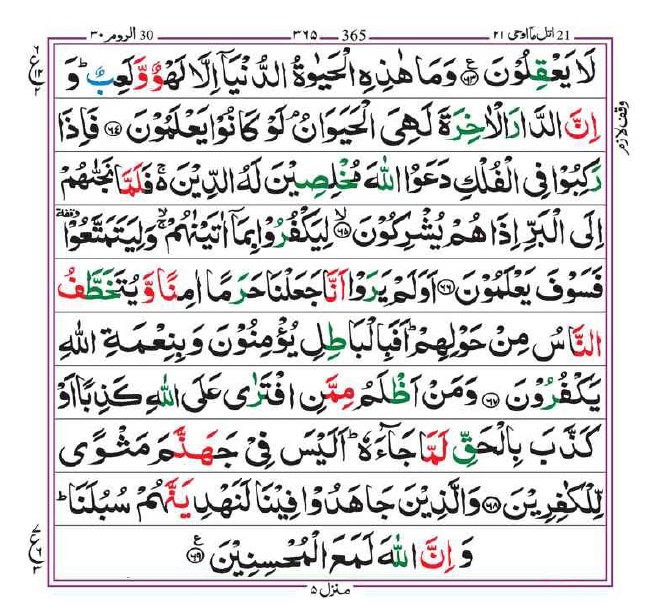 21 اتل ماۤ اوحی ۲۱ — 365 — ۳۶۵ — 30 الروم ۳۰
لَا يَعْقِلُوْنَ ﴿۶۳﴾ وَمَا هٰذِهِ الْحَيٰوةُ الدُّنْيَاۤ اِلَّا لَهْوٌ وَّلَعِبٌ ؕ وَ
اِنَّ الدَّارَ الْاٰخِرَةَ لَهِيَ الْحَيَوَانُ ۘ لَوْ كَانُوْا يَعْلَمُوْنَ ﴿۶۴﴾ فَاِذَا
رَكِبُوْا فِي الْفُلْكِ دَعَوُا اللّٰهَ مُخْلِصِيْنَ لَهُ الدِّيْنَ ۚ فَلَمَّا نَجّٰىهُمْ
اِلَى الْبَرِّ اِذَا هُمْ يُشْرِكُوْنَ ﴿۶۵﴾ لِيَكْفُرُوْا بِمَاۤ اٰتَيْنٰهُمْ ۙۚ وَلِيَتَمَتَّعُوْا وقفة
فَسَوْفَ يَعْلَمُوْنَ ﴿۶۶﴾ اَوَلَمْ يَرَوْا اَنَّا جَعَلْنَا حَرَمًا اٰمِنًا وَّيُتَخَطَّفُ
النَّاسُ مِنْ حَوْلِهِمْ ؕ اَفَبِالْبَاطِلِ يُؤْمِنُوْنَ وَبِنِعْمَةِ اللّٰهِ
يَكْفُرُوْنَ ﴿۶۷﴾ وَمَنْ اَظْلَمُ مِمَّنِ افْتَرٰى عَلَى اللّٰهِ كَذِبًا اَوْ
كَذَّبَ بِالْحَقِّ لَمَّا جَآءَهٗ ؕ اَلَيْسَ فِيْ جَهَنَّمَ مَثْوًى
لِّلْكٰفِرِيْنَ ﴿۶۸﴾ وَالَّذِيْنَ جَاهَدُوْا فِيْنَا لَنَهْدِيَنَّهُمْ سُبُلَنَا ؕ
وَ اِنَّ اللّٰهَ لَمَعَ الْمُحْسِنِيْنَ ﴿۶۹﴾
منزل ۵
وقف لازم
ع ۶ ۱۲ ۲
ع ۷ ۶ ۳